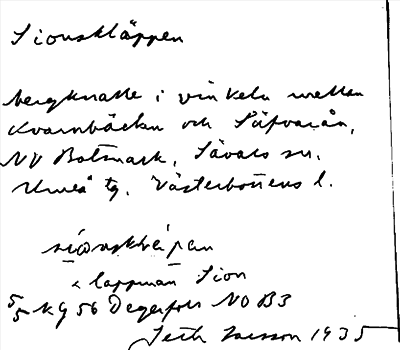 Sionskläppen
bergknalle i vinkeln mellan
Kvarnbäcken och Säfvarån,
NV Botsmark, Sävars sn.
Umeå tg. Västerbottens l.
< lappman Sion
5/5 KG 56 Degerfors NO B3
Seth Jansson 1935